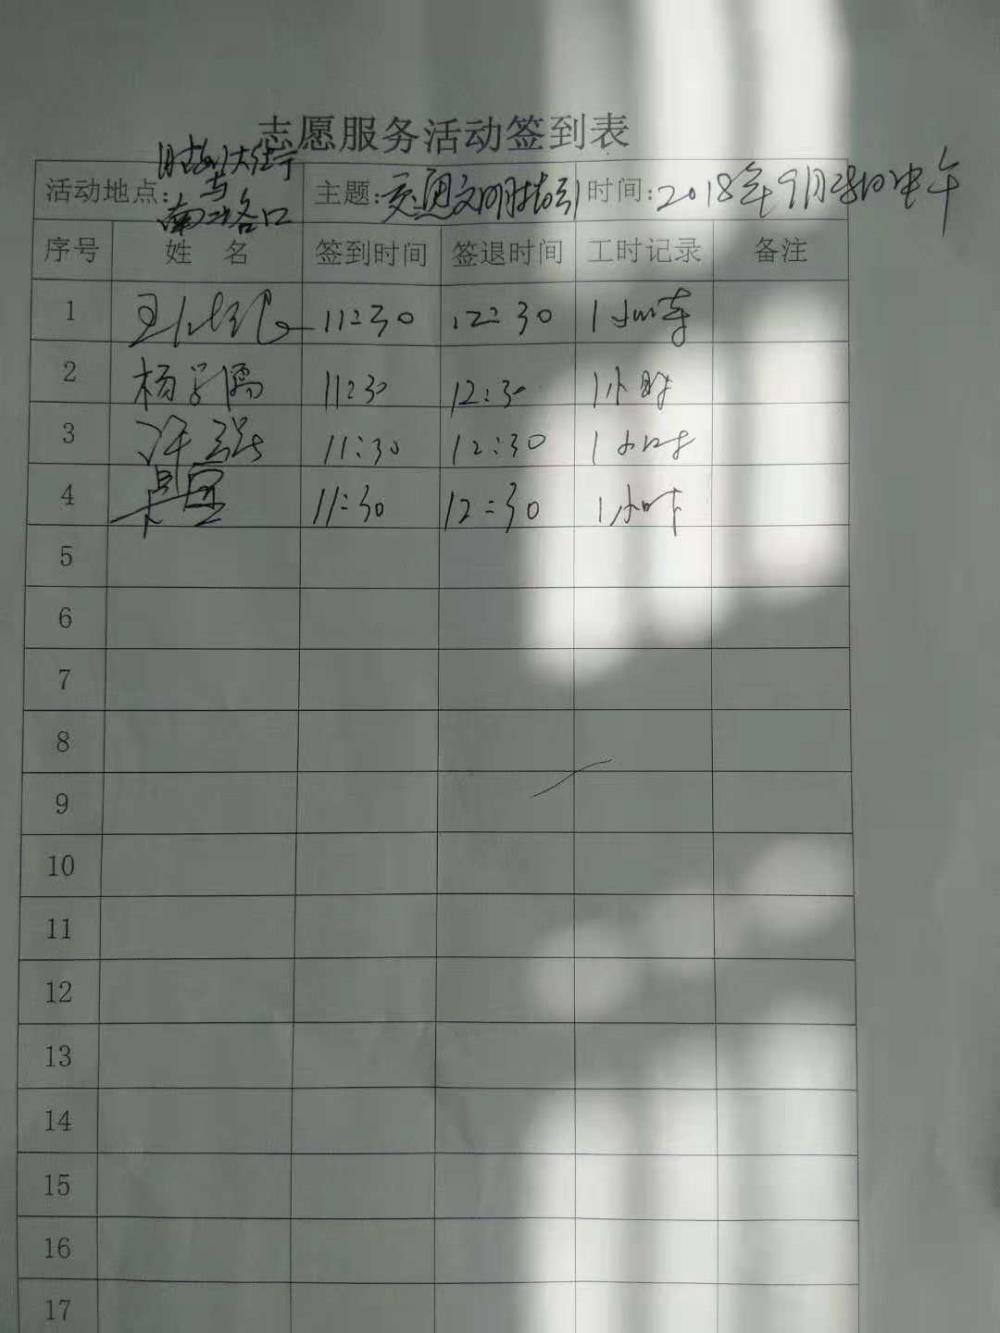 志愿服务活动签到表
活动地点: 与 南二路口 主题:交通文明指引 时间:2018年9月28日中午
序号 姓 名 签到时间 签退时间 工时记录 备注
1 11:30 12:30 1小时
2 杨子儒 11:30 12:30 1小时
3 许强 11:30 12:30 1小时
4 11:30 12:30 1小时
5
6
7
8
9
10
11
12
13
14
15
16
17